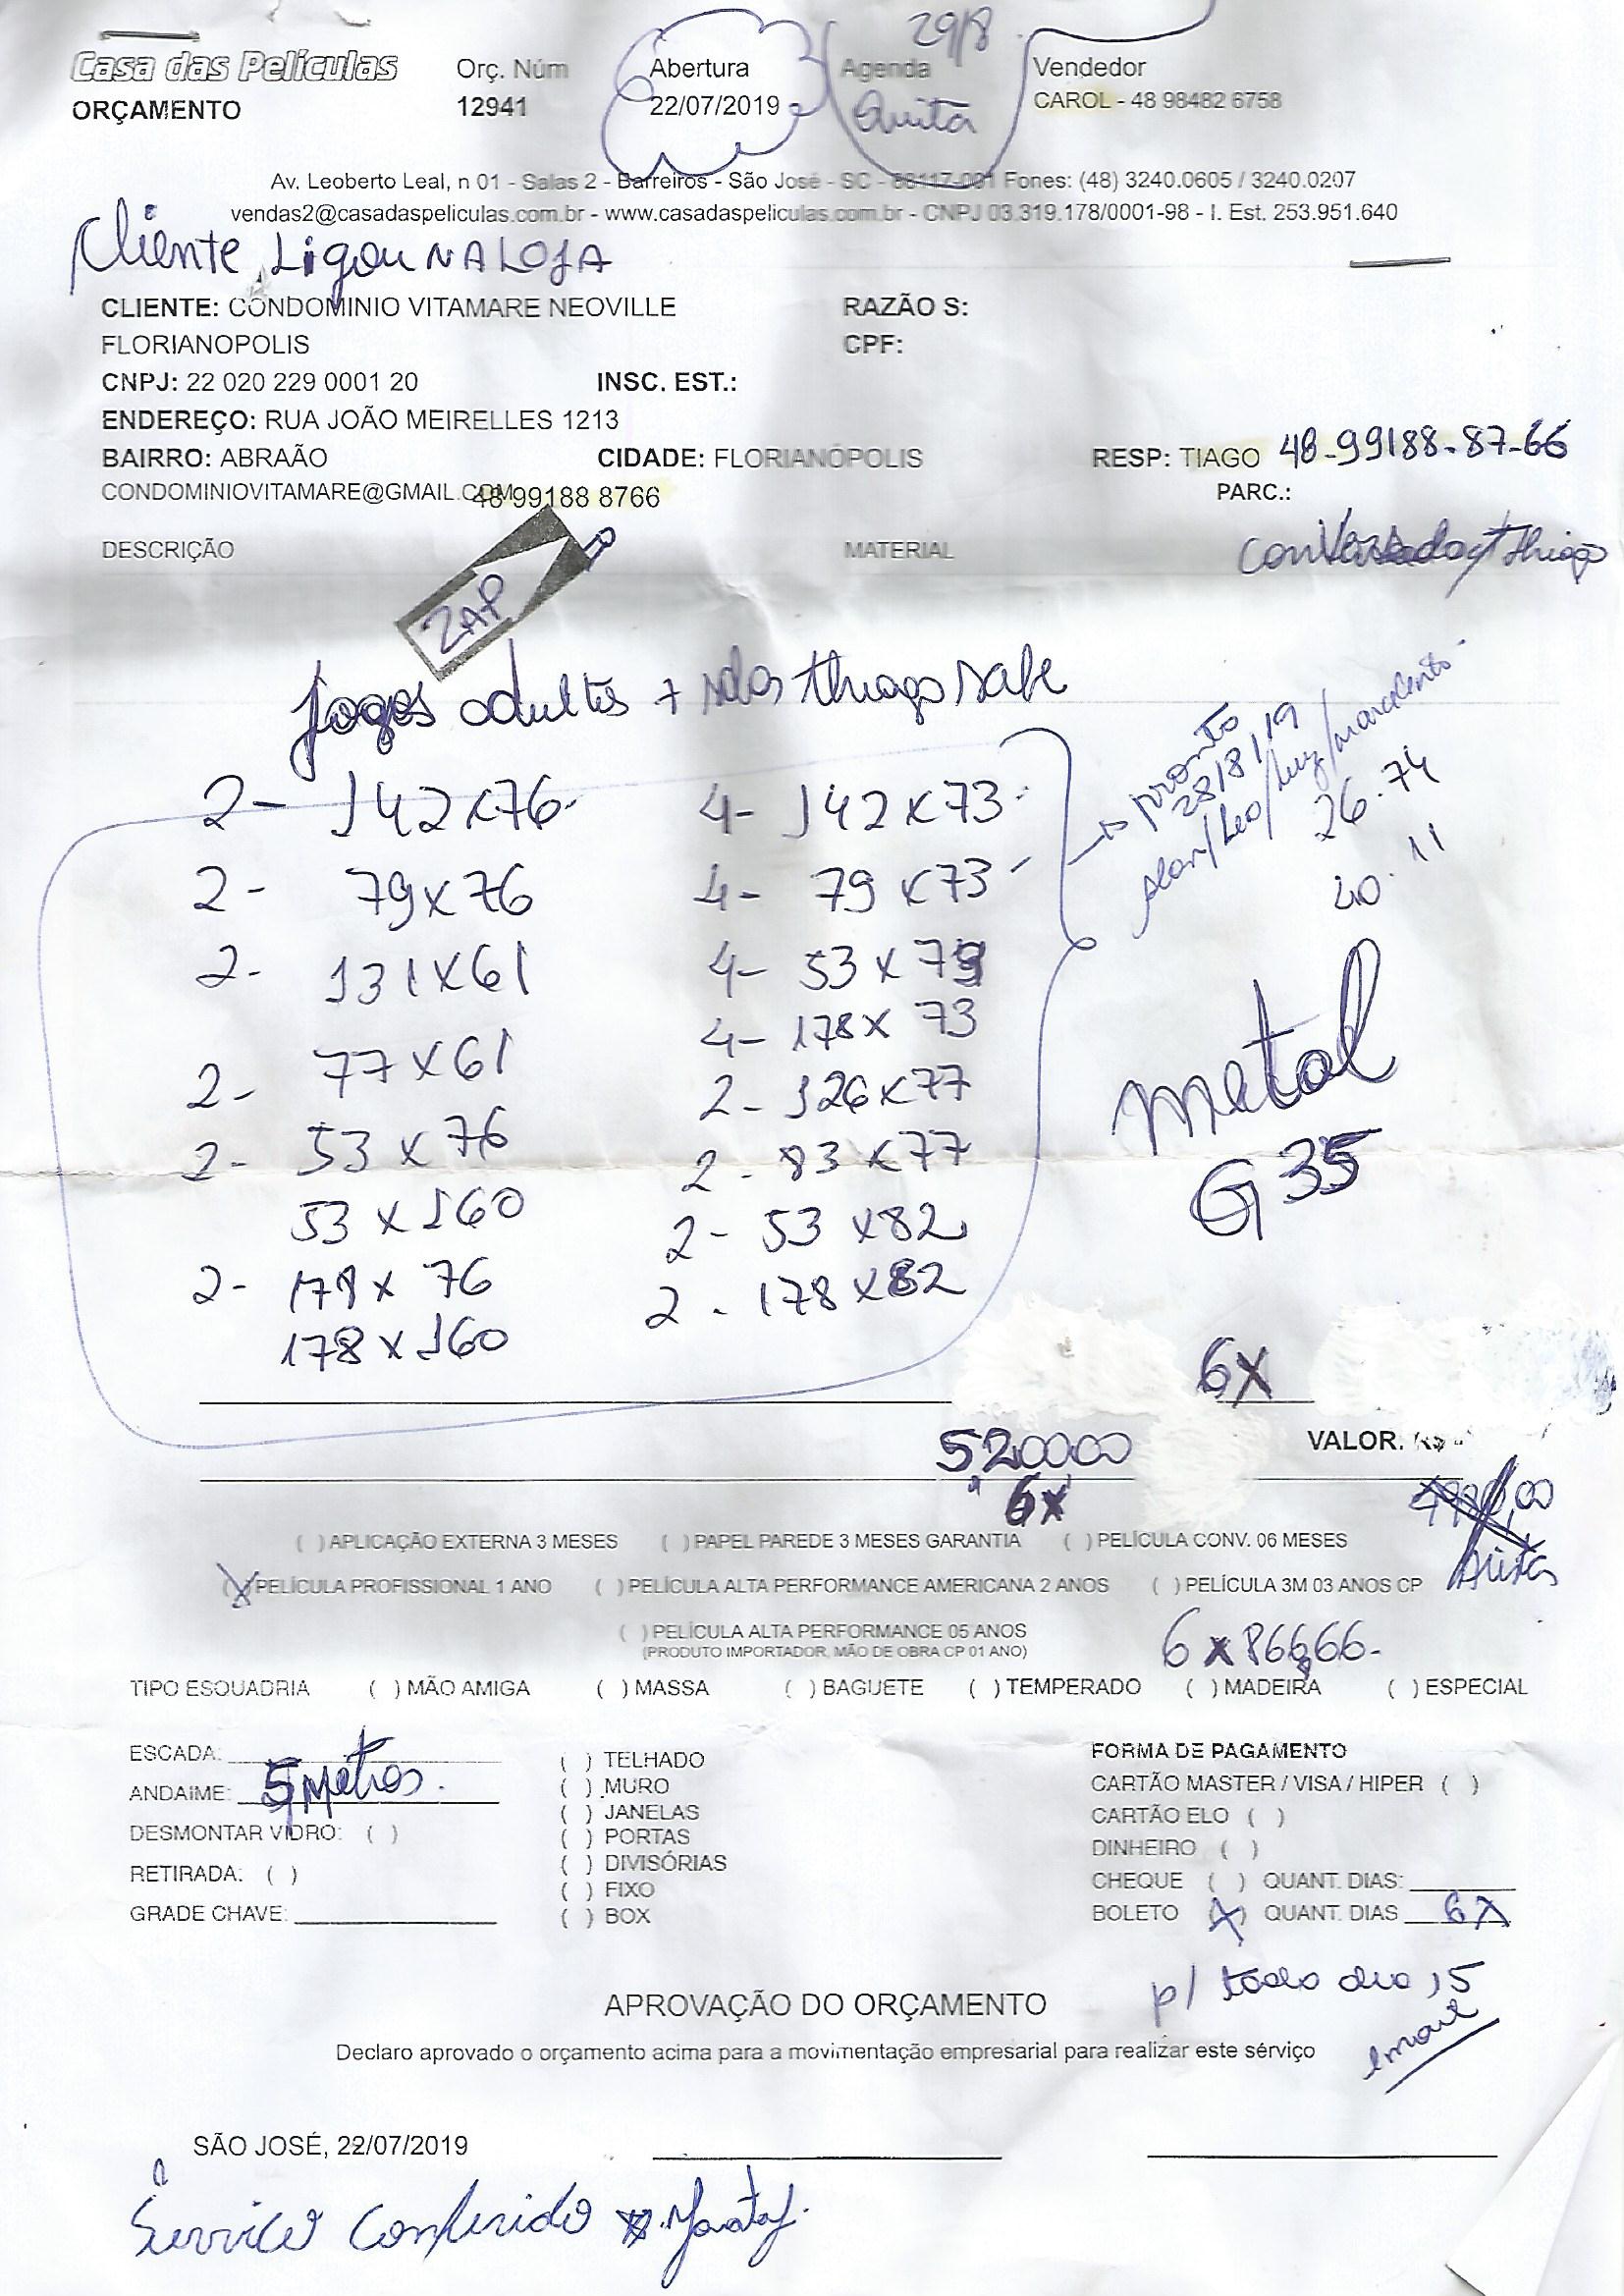 29/8
Casa das Películas Orç. Núm Abertura Agenda Vendedor
ORÇAMENTO 12941 22/07/2019 Quita CAROL - 48 98482 6758
Av. Leoberto Leal, n 01 - Salas 2 - Barreiros - São José - SC - 88117-001 Fones: (48) 3240.0605 / 3240.0207
vendas2@casadaspeliculas.com.br - www.casadaspeliculas.com.br - CNPJ 03.319.178/0001-98 - I. Est. 253.951.640
Cliente Ligou NA LOJA
CLIENTE: CONDOMINIO VITAMARE NEOVILLE RAZÃO S:
FLORIANOPOLIS CPF:
CNPJ: 22 020 229 0001 20 INSC. EST.:
ENDEREÇO: RUA JOÃO MEIRELLES 1213
BAIRRO: ABRAÃO CIDADE: FLORIANÓPOLIS RESP: TIAGO 48-99188-87-66
CONDOMINIOVITAMARE@GMAIL.COM 48 99188 8766 PARC.:
DESCRIÇÃO MATERIAL thiago
ZAP
Jogos adultos + thiago sabe
2- 142x76 4- 142x73
2- 79x76 4- 79x73
2- 131x61 4- 53x79
2- 77x61 4- 178x73
2- 53x76 2- 126x77
53x160 2- 83x77
2- 178x76 2- 53x82
178x160 2- 178x82
pronto
28/8/19
26.74
40.11
Metal
G35
6x
5,20000 VALOR. R$
6x
,00
( ) APLICAÇÃO EXTERNA 3 MESES ( ) PAPEL PAREDE 3 MESES GARANTIA ( ) PELÍCULA CONV. 06 MESES
(X) PELÍCULA PROFISSIONAL 1 ANO ( ) PELÍCULA ALTA PERFORMANCE AMERICANA 2 ANOS ( ) PELÍCULA 3M 03 ANOS CP
( ) PELÍCULA ALTA PERFORMANCE 05 ANOS
(PRODUTO IMPORTADOR, MÃO DE OBRA CP 01 ANO)
6 x 866,66-
TIPO ESQUADRIA ( ) MÃO AMIGA ( ) MASSA ( ) BAGUETE ( ) TEMPERADO ( ) MADEIRA ( ) ESPECIAL
ESCADA:
ANDAIME: 5 Metros.
DESMONTAR VIDRO: ( )
RETIRADA: ( )
GRADE CHAVE:
( ) TELHADO
( ) MURO
( ) JANELAS
( ) PORTAS
( ) DIVISÓRIAS
( ) FIXO
( ) BOX
FORMA DE PAGAMENTO
CARTÃO MASTER / VISA / HIPER ( )
CARTÃO ELO ( )
DINHEIRO ( )
CHEQUE ( ) QUANT. DIAS:
BOLETO (X) QUANT. DIAS 6X
p/ todo dia 15
email
APROVAÇÃO DO ORÇAMENTO
Declaro aprovado o orçamento acima para a movimentação empresarial para realizar este sérviço
SÃO JOSÉ, 22/07/2019
Serviço Conferido